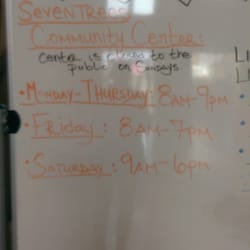 SEVENTREES
COMMUNITY CENTER:
Center is closed to the
public on Sundays.
• MONDAY-THURSDAY: 8AM-9PM
• FRIDAY: 8AM-7PM
• SATURDAY: 9AM-6PM